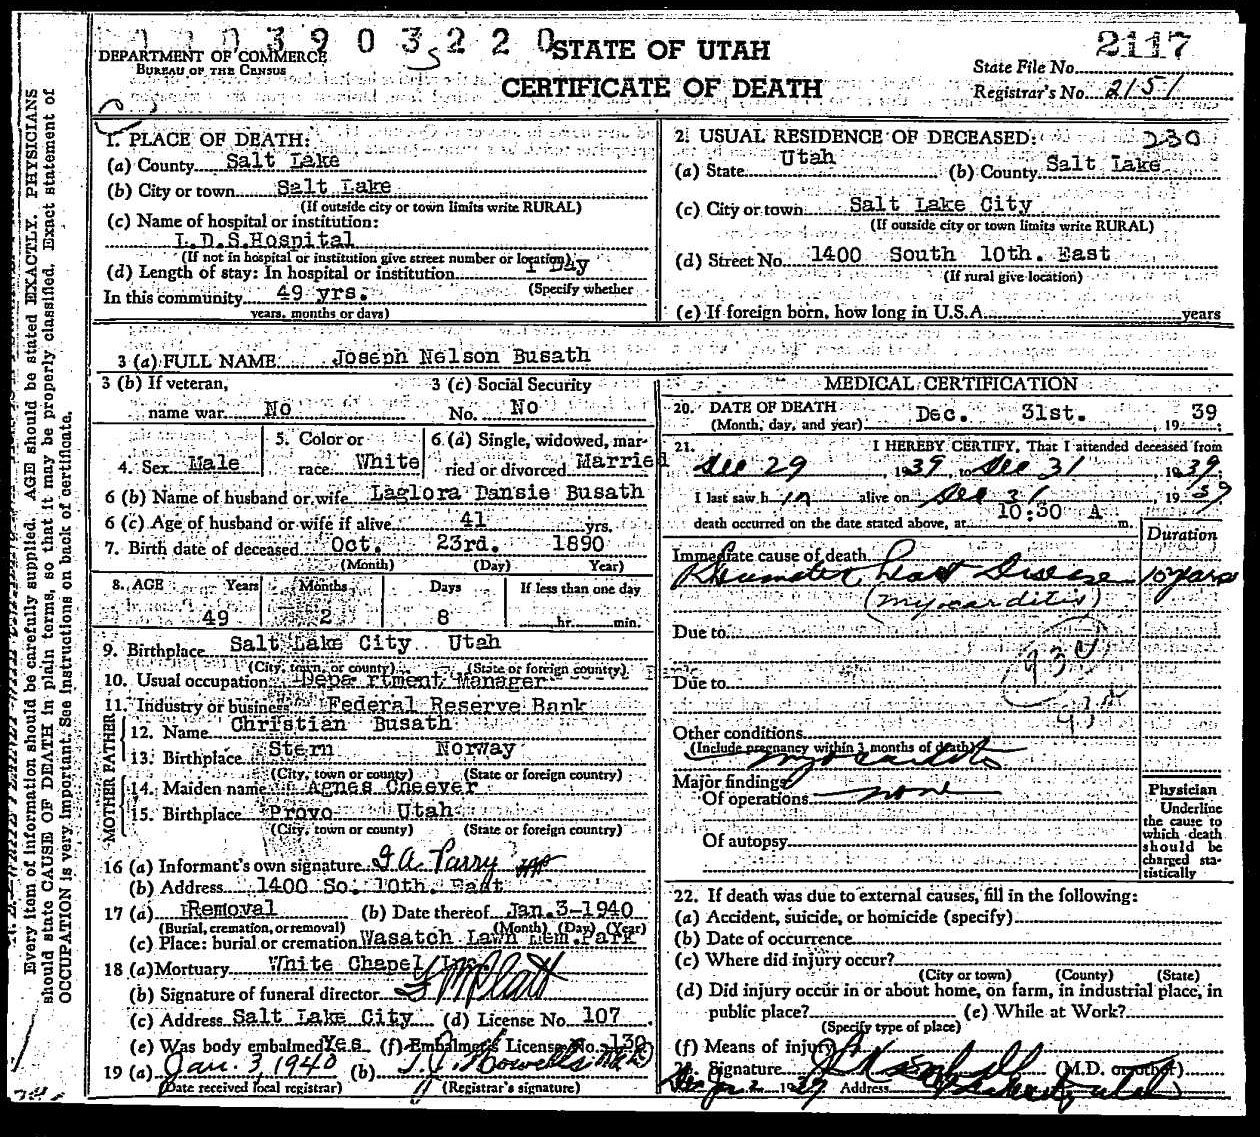 003903220
DEPARTMENT OF COMMERCE
BUREAU OF THE CENSUS
STATE OF UTAH
CERTIFICATE OF DEATH
2117
State File No.
Registrar's No. 2151
1. PLACE OF DEATH:
(a) County Salt Lake
(b) City or town Salt Lake
(If outside city or town limits write RURAL)
(c) Name of hospital or institution:
L.D.S.Hospital
(If not in hospital or institution give street number or location)
(d) Length of stay: In hospital or institution 1 Day
(Specify whether
In this community 49 yrs.
years, months or days)
2. USUAL RESIDENCE OF DECEASED: 230
(a) State Utah (b) County Salt Lake
(c) City or town Salt Lake City
(If outside city or town limits write RURAL)
(d) Street No. 1400 South 10th. East
(If rural give location)
(e) If foreign born, how long in U.S.A. years
3 (a) FULL NAME Joseph Nelson Busath
3 (b) If veteran,
name war No
3 (c) Social Security
No. No
4. Sex Male
5. Color or
race White
6 (a) Single, widowed, mar-
ried or divorced Married
6 (b) Name of husband or wife Laglora Dansie Busath
6 (c) Age of husband or wife if alive 41 yrs.
7. Birth date of deceased Oct. 23rd. 1890
(Month) (Day) Year)
8. AGE Years Months Days If less than one day
49 2 8 hr. min.
9. Birthplace Salt Lake City Utah
(City, town, or county) (State or foreign country)
10. Usual occupation Department Manager
11. Industry or business Federal Reserve Bank
FATHER
12. Name Christian Busath
13. Birthplace Stern Norway
(City, town or county) (State or foreign country)
MOTHER
14. Maiden name Agnes Cheever
15. Birthplace Provo Utah
(City, town or county) (State or foreign country)
16 (a) Informant's own signature Parry
(b) Address 1400 So. 10th. East
17 (a) Removal (b) Date thereof Jan.3-1940
(Burial, cremation, or removal) (Month) (Day) (Year)
(c) Place: burial or cremation Wasatch Lawn Mem.Park
18 (a) Mortuary White Chapel Inc.
(b) Signature of funeral director
(c) Address Salt Lake City (d) License No. 107
(e) Was body embalmed Yes (f) Embalmer's License No. 130
19 (a) Jan. 3 1940 (b) T. J. Howells M.D.
(Date received local registrar) (Registrar's signature)
MEDICAL CERTIFICATION
20. DATE OF DEATH Dec. 31st. , 19 39
(Month, day, and year)
21. I HEREBY CERTIFY, That I attended deceased from
Dec 29 , 1939 to Dec 31 , 1939.
I last saw him alive on Dec 31 , 1939
10:30 A
death occurred on the date stated above, at m.
Duration
Immediate cause of death
Rheumatic heart Disease 10 years
(myocarditis)
Due to
Due to
Other conditions
(Include pregnancy within 3 months of death)
myocarditis
Major findings
Of operations none
Of autopsy
Physician
Underline
the cause to
which death
should be
charged sta-
tistically
22. If death was due to external causes, fill in the following:
(a) Accident, suicide, or homicide (specify)
(b) Date of occurrence
(c) Where did injury occur?
(City or town) (County) (State)
(d) Did injury occur in or about home, on farm, in industrial place, in
public place? (e) While at Work?
(Specify type of place)
(f) Means of injury
Signature (M.D. or other)
Address
Every item of information should be carefully supplied. AGE should be stated EXACTLY. PHYSICIANS
should state CAUSE OF DEATH in plain terms, so that it may be properly classified. Exact statement of
OCCUPATION is very important. See Instructions on back of certificate.